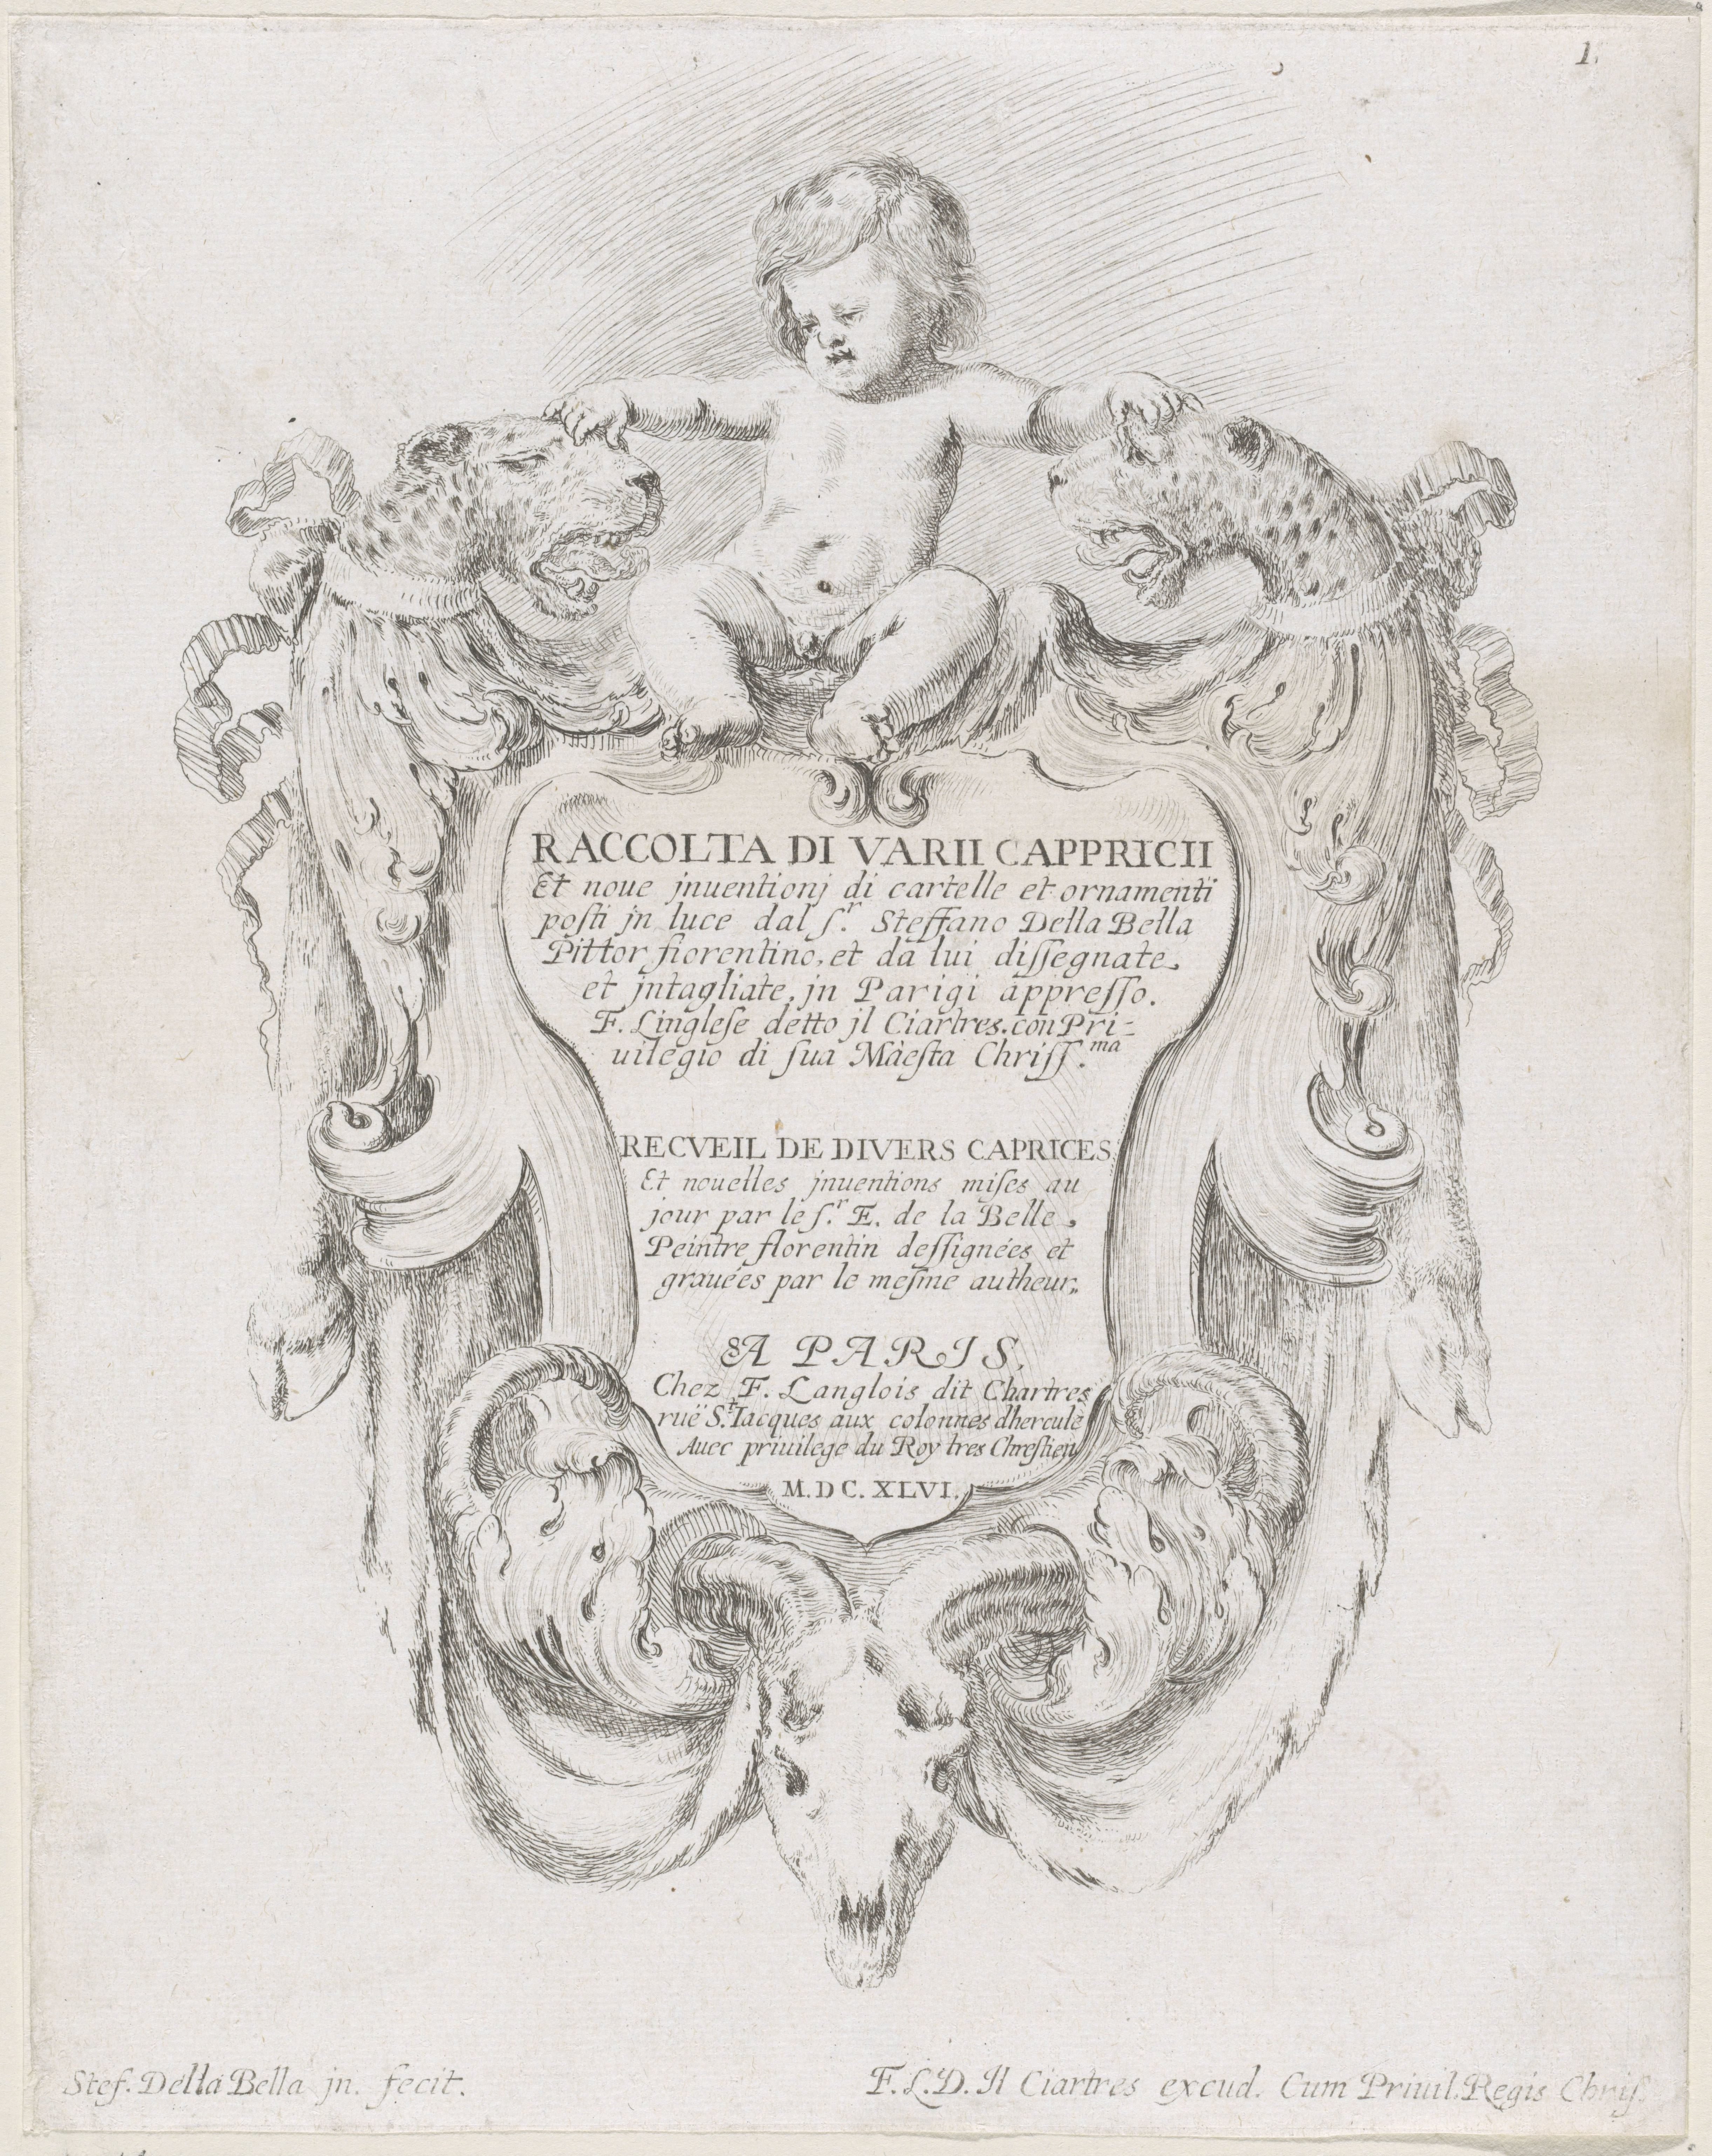 1.
RACCOLTA DI VARII CAPPRICII
Et noue jnuentionj di cartelle et ornamenti
posti jn luce dal ſ.r Steffano Della Bella
Pittor fiorentino, et da lui diſſegnate,
et jntagliate, jn Parigi appreſſo.
F. Lingleſe detto jl Ciartres. con Pri-
uilegio di ſua Màeſta Chriſſ.ma
RECVEIL DE DIVERS CAPRICES
Et nouelles jnuentions miſes au
jour par le ſ.r E. de la Belle,
Peintre florentin deſſignées et
grauées par le meſme autheur,,
A PARIS,
Chez F. Langlois dit Chartres
ruë S.t Iacques aux colonnes dhercule
Auec priuilege du Roy tres Chreſtien
M.DC.XLVI.
Stef. Della Bella jn. fecit.
F.L.D. Il Ciartres excud. Cum Priuil. Regis Chriſ.